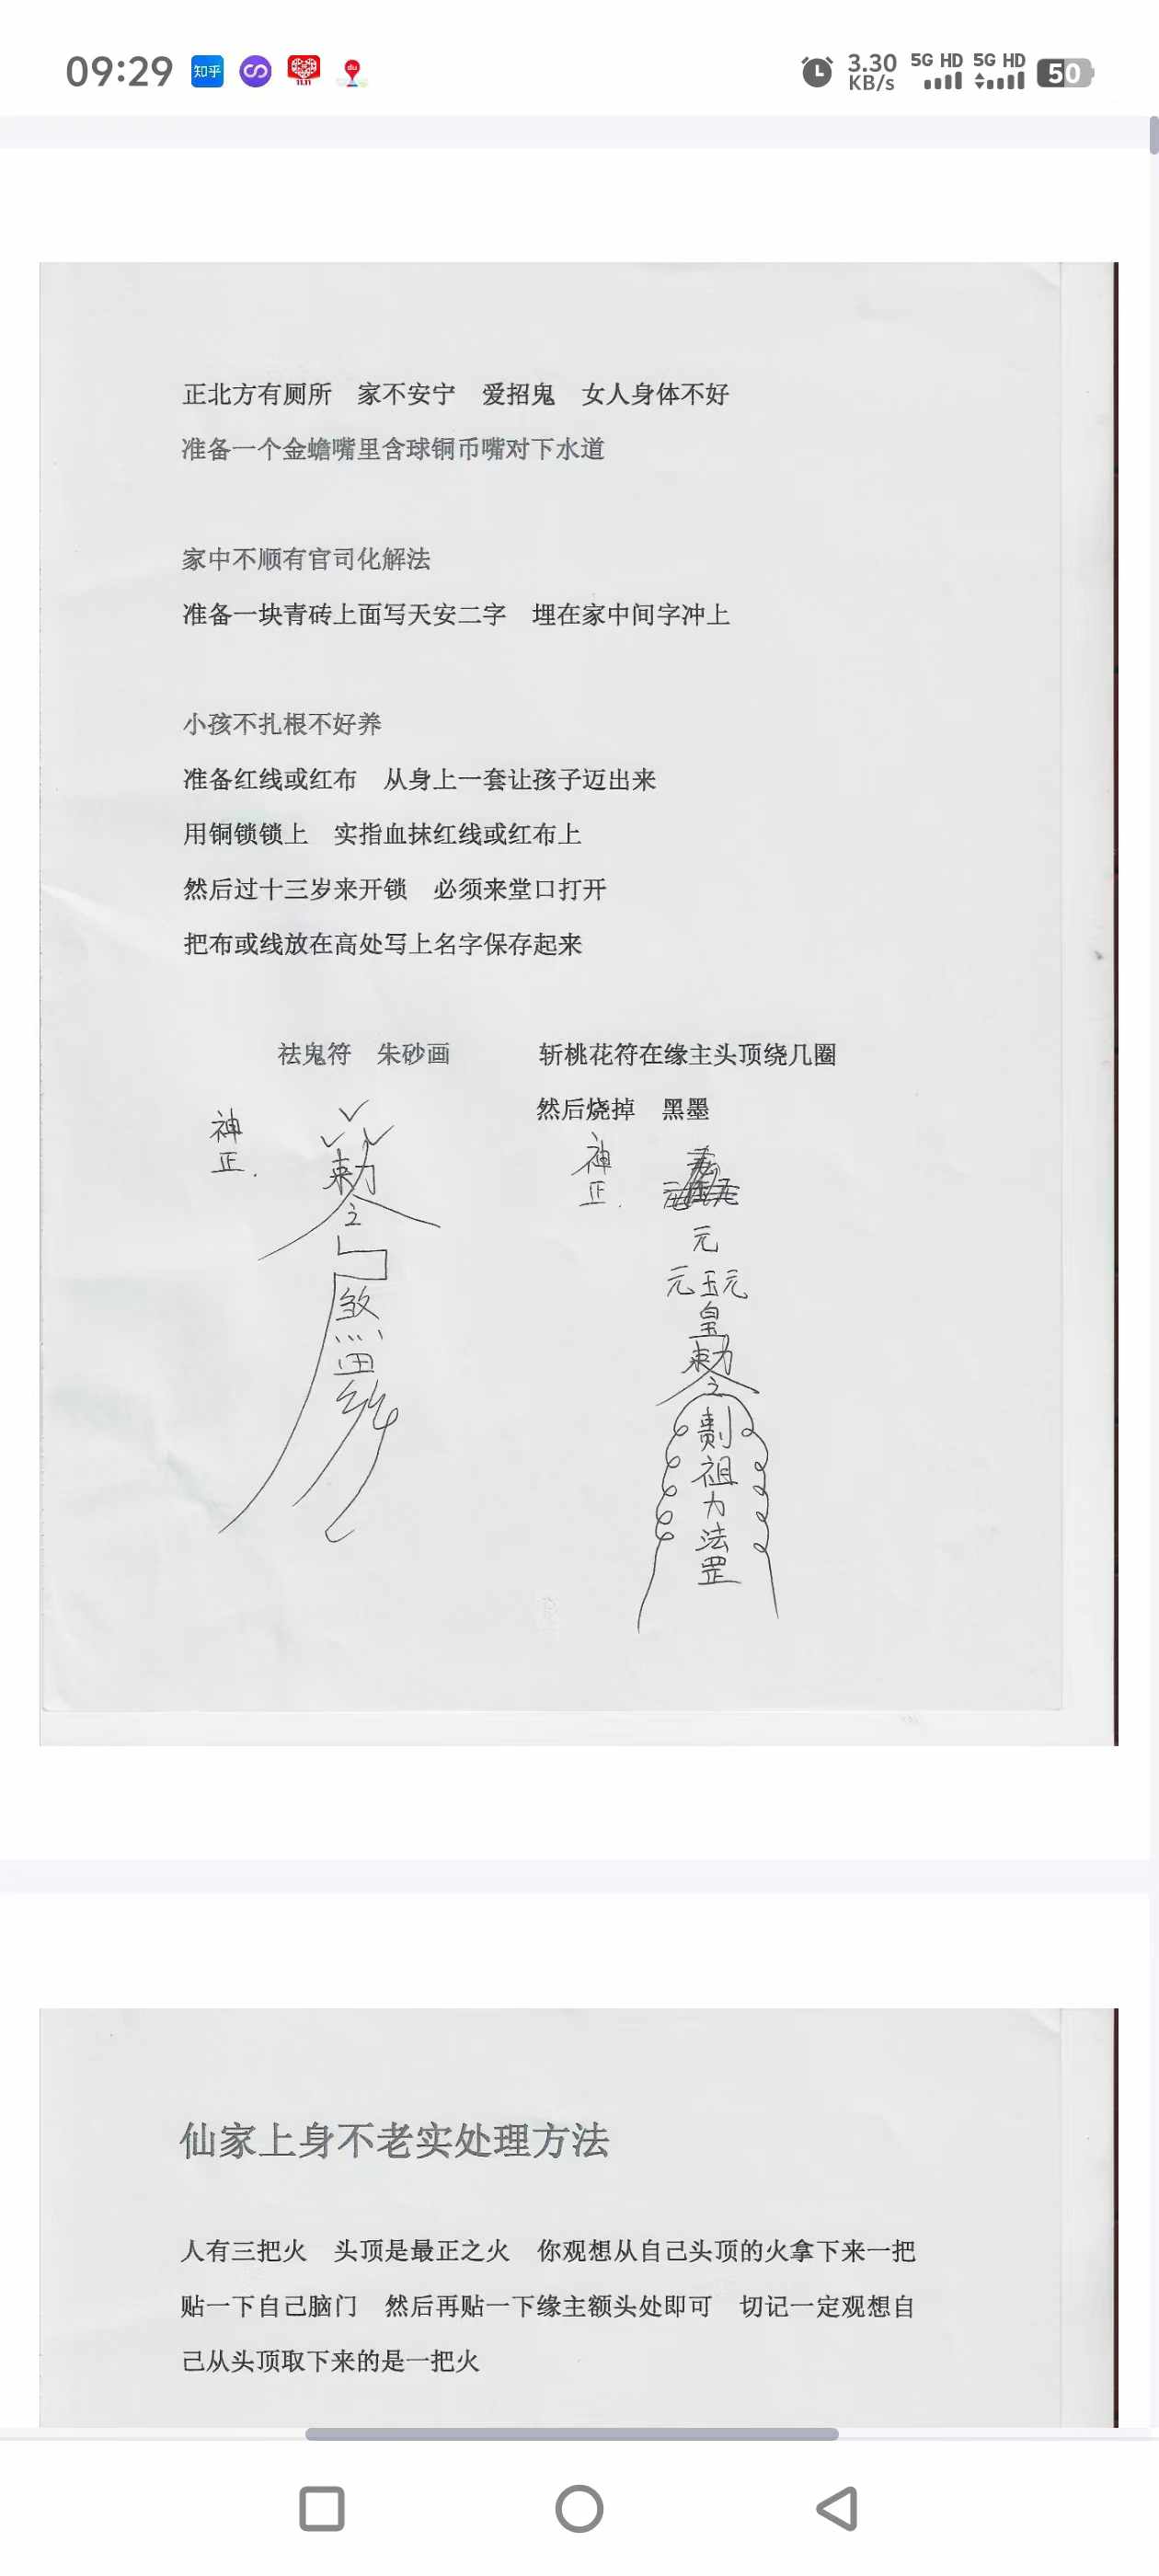 09:29
知乎
du
11.11
3.30
KB/s
5G HD 5G HD
50
正北方有厕所 家不安宁 爱招鬼 女人身体不好
准备一个金蟾嘴里含球铜币嘴对下水道
家中不顺有官司化解法
准备一块青砖上面写天安二字 埋在家中间字冲上
小孩不扎根不好养
准备红线或红布 从身上一套让孩子迈出来
用铜锁锁上 实指血抹红线或红布上
然后过十三岁来开锁 必须来堂口打开
把布或线放在高处写上名字保存起来
祛鬼符 朱砂画
斩桃花符在缘主头顶绕几圈
然后烧掉 黑墨
神
正.
敕
令
煞
神
正.
元
元玉元
皇
敕
令
祖
力
法
罡
仙家上身不老实处理方法
人有三把火 头顶是最正之火 你观想从自己头顶的火拿下来一把
贴一下自己脑门 然后再贴一下缘主额头处即可 切记一定观想自
己从头顶取下来的是一把火